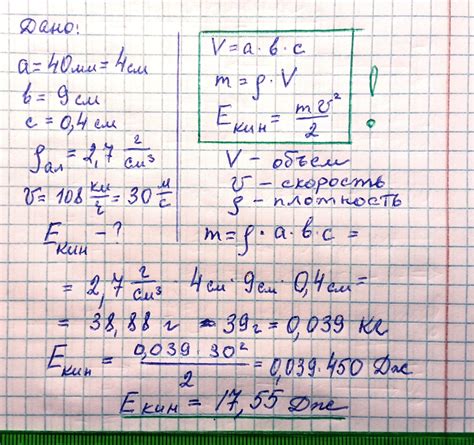 Дано:
a = 40мм = 4см
в = 9см
c = 0,4см
ρал = 2,7 г/см³
v = 108 км/ч = 30 м/с
Eкин – ?
V = a · b · c
m = ρ · V
Eкин = mv²/2
!
V – объем
v – скорость
ρ – плотность
m = ρ · a · b · c =
= 2,7 г/см³ · 4см · 9см · 0,4см =
= 38,88 г ≈ 39г = 0,039 кг
Eкин = 0,039 · 30²/2 = 0,039 · 450 Дж
Eкин = 17,55 Дж